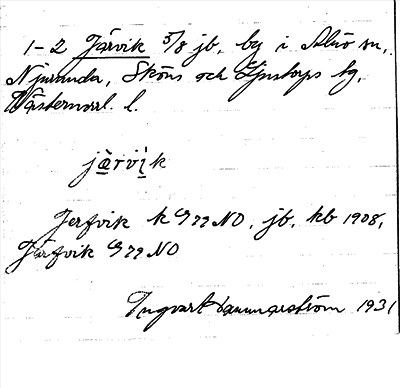 1-2 Järvik 5/8 jb, by i Alnö sn,
Njurunda, Sköns och Ljustorps tg,
Västernorrl. l.
järvik
Jerfvik k G 79 NO, jb, kb 1908,
Järfvik G 79 NO
Ingvart Hammarström 1931